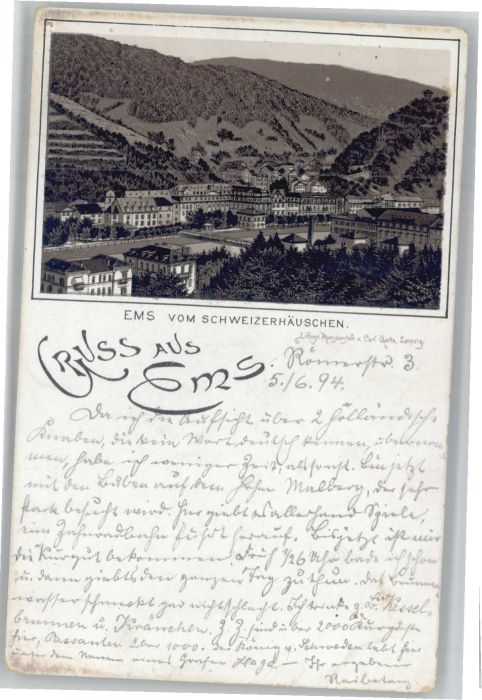 EMS VOM SCHWEIZERHÄUSCHEN.
Lithogr. Kunstanstalt v. Carl Garte, Leipzig.
Gruss aus
Ems. Römerstr. 3.
5./6. 94.
Da ich die Aufsicht über 2 holländische
Knaben, die kein Wort deutsch kennen, übernom
men, habe ich weniger Zeit als sonst. Bin jetzt
mit den Buben auf dem hohen Malberg, der sehr
stark besucht wird. Hier giebt es allerhand Spiele,
eine Zahnradbahn führt herauf. Bis jetzt ist mir
die Kur gut bekommen. Früh 1/2 6 Uhr bade ich schon
u. dann giebts den ganzen Tag zu thun. Das Brunnen
wasser schmeckt gar nicht schlecht. Ich trinke Kessel-
brunnen u. Kränchen. Z. Z. sind über 2000 Kurgäste
hier, Passanten über 1000. Der König v. Schweden lebt hier
unter dem Namen eines Grafen Haga. – Ihr ergebener